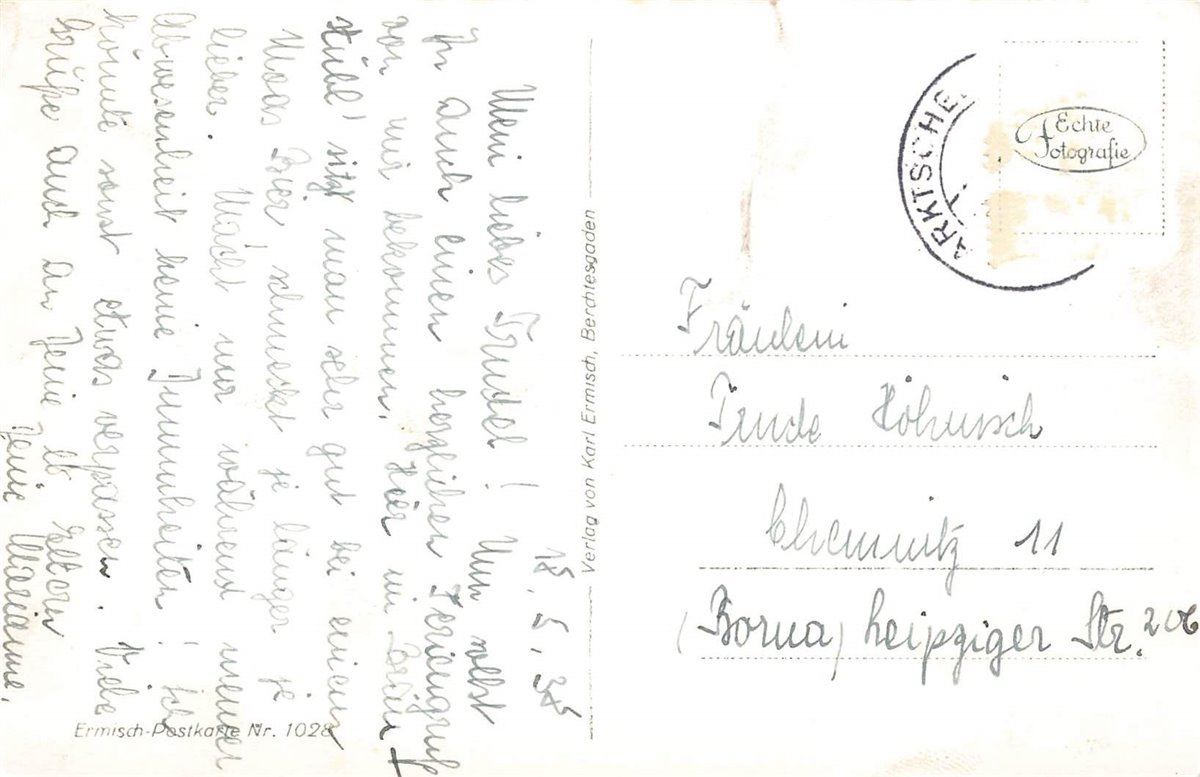 18. 5. 38
Mein liebes Trudel! Nun sollst
Du auch einen herzlichen Feriengruß
von mir bekommen. Hier im Bräu-
stübl sitzt man sehr gut bei einem
Maas Bier, schmeckt je länger je
lieber. Macht nur während meiner
Abwesenheit keine Dummheiten! Ich
könnte sonst etwas verpassen. Viele
Grüße auch an Deine lb Eltern
Deine Marianne.
Ermisch-Postkarte Nr. 1028
Verlag von Karl Ermisch, Berchtesgaden
ARKTSCHE
Echte
Fotografie
Fräulein
Trude
Chemnitz 11
(Borna) Leipziger Str. 206